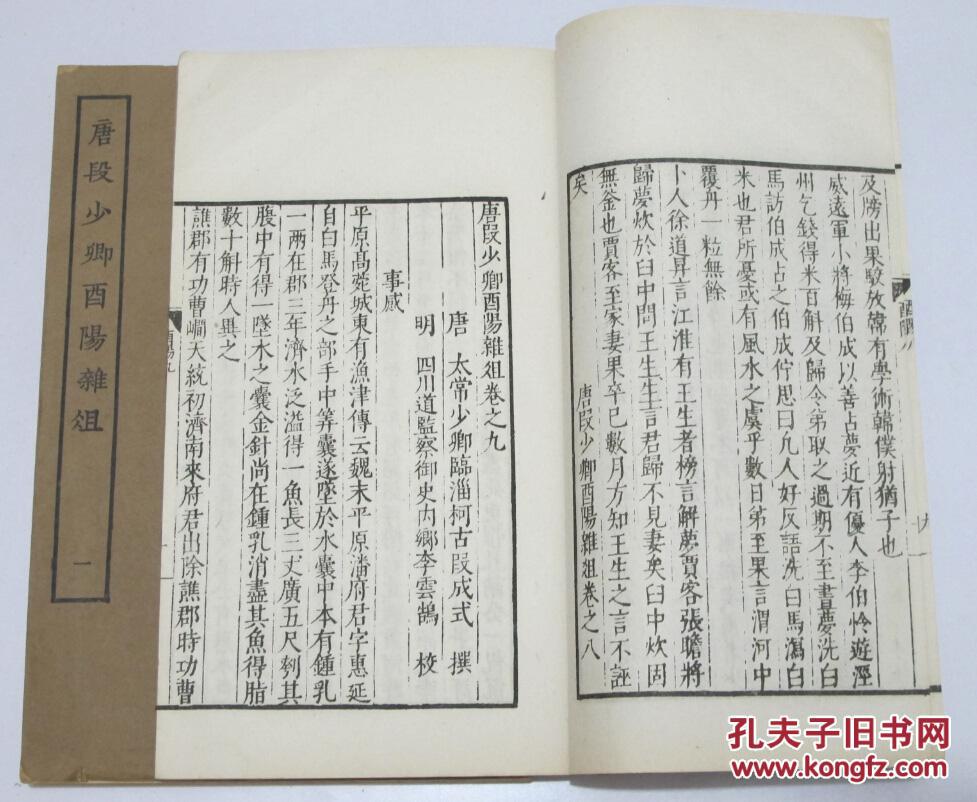 及牓出果駮放韓有學術韓僕射猶子也
威遠軍小將梅伯成以善占夢近有優人李伯怜遊涇
州乞錢得米百斛及歸令弟取之過期不至晝夢洗白
馬訪伯成占之伯成佇思曰凡人好反語洗白馬瀉白
米也君所憂或有風水之虞乎數日弟至果言渭河中
覆舟一粒無餘
卜人徐道昇言江淮有王生者榜言解夢賈客張瞻將
歸夢炊於臼中問王生生言君歸不見妻矣臼中炊固
無釜也賈客至家妻果卒已數月方知王生之言不誣
矣
唐段少卿酉陽雜俎卷之八
酉陽八
九
唐段少卿酉陽雜俎卷之九
唐 太常少卿臨淄柯古段成式 撰
明 四川道監察御史內鄉李雲鵠 校
事感
平原高菀城東有漁津傳云魏末平原潘府君字惠延
自白馬登舟之部手中筭囊遂墜於水囊中本有鍾乳
一兩在郡三年濟水泛溢得一魚長三丈廣五尺刳其
腹中有得一墜水之囊金針尚在鍾乳消盡其魚得脂
數十斛時人異之
譙郡有功曹㵎天統初濟南來府君出除譙郡時功曹
酉陽九
一
唐段少卿酉陽雜俎
一
孔夫子旧书网
www.kongfz.com